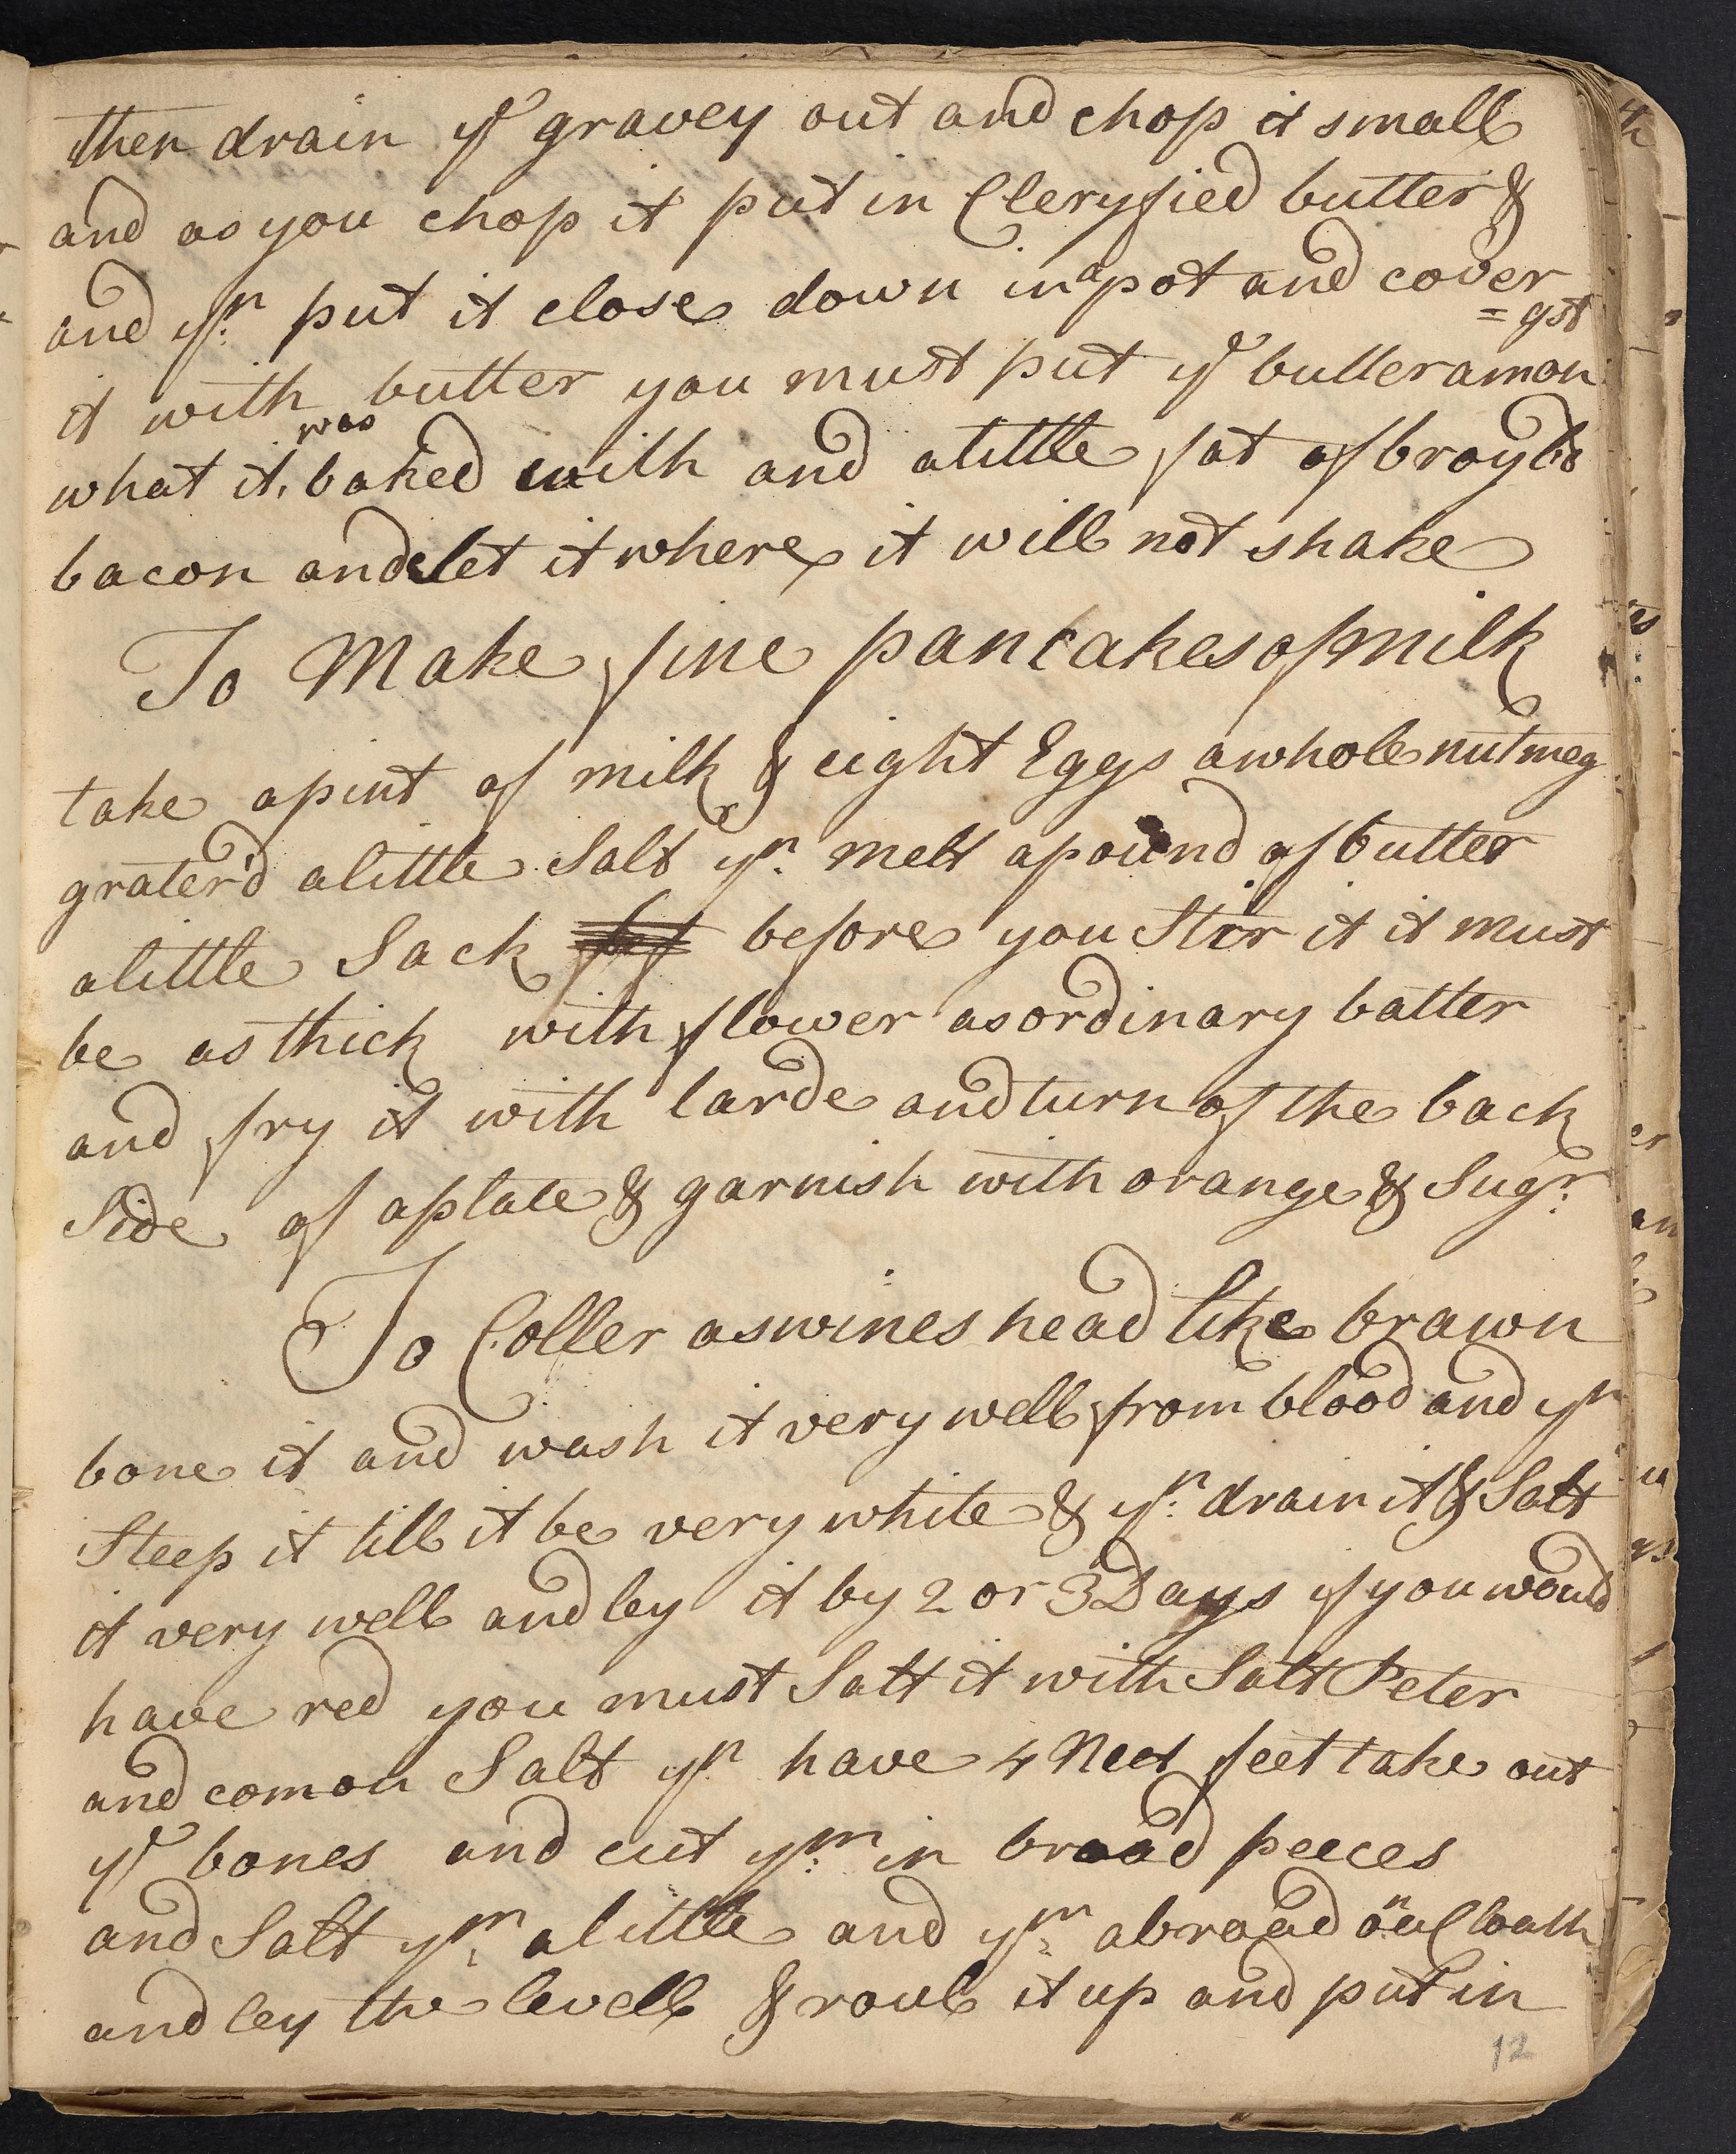 then drain ye gravey out and chop it small
and as you chop it put in Cleryfied butter &
and yn put it close down in a pot and cover
it with butter you must put ye butter amon=gst
what it was baked with and a little fat of
bacon and set it where it will not shake
To Make fine pancakes of milk
take a pint of milk & eight Eggs a whole nutmeg
grater'd a little Salt yn. melt a pound of butter
a little Sack before you Stir it it must
be as thick with flower as ordinary batter
and fry it with larde and turn of the back
Side of a plate & garnish with orange & Sugr.
To Coller a swines head like brawn
bone it and wash it very well from blood and yn
Steep it till it be very white & yn. drain it & Salt
it very well and ley it by 2 or 3 Days if you would
have red you must Salt it with Salt Peter
and comon Salt yn have 4 Neet feet take out
ye bones and cut ym. in broad peeces
and Salt ym. a little and ym. abroad on a Cloath
and ley the levell & roul it up and put in
12